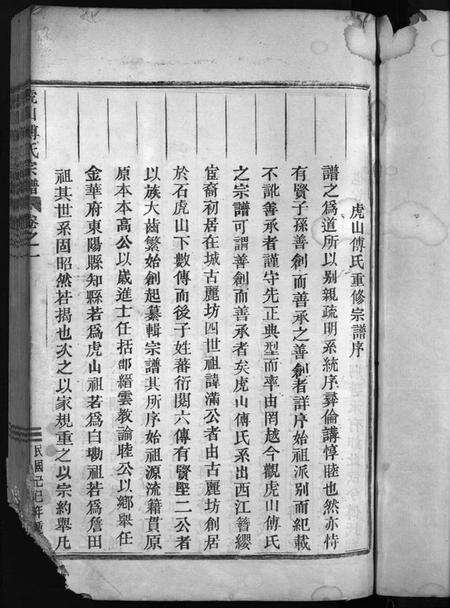 虎山傅氏重修宗譜序
譜之為道所以別親疏明系統序彛倫講惇睦也然亦恃
有賢子孫善創而善承之善創者詳序始祖派別而紀載
不訛善承者謹守先正典型而率由罔越今觀虎山傅氏
之宗譜可謂善創而善承者矣虎山傅氏系出西江簪纓
宦裔初居在城古麗坊四世祖諱滿公者由古麗坊創居
於石虎山下數傳而後子姓蕃衍閱六傳有賢堅二公者
以族大齒繁始創起纂輯宗譜其所序始祖源流籍貫原
原本本高公以歲進士任括郡縉雲教諭睦公以鄉舉任
金華府東陽縣知縣若為虎山祖若為白墈祖若為詹田
祖其世系固昭然若揭也次之以家規重之以宗約舉凡
虎山傅氏宗譜
卷之一
民國己巳年重